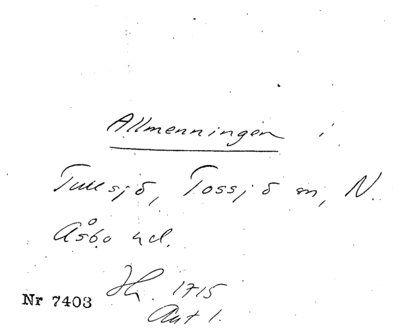 Allmenningen i
Tullsjö, Tossjö sn, N.
Åsbo hd.
1715
Nr 7403
Akt 1.